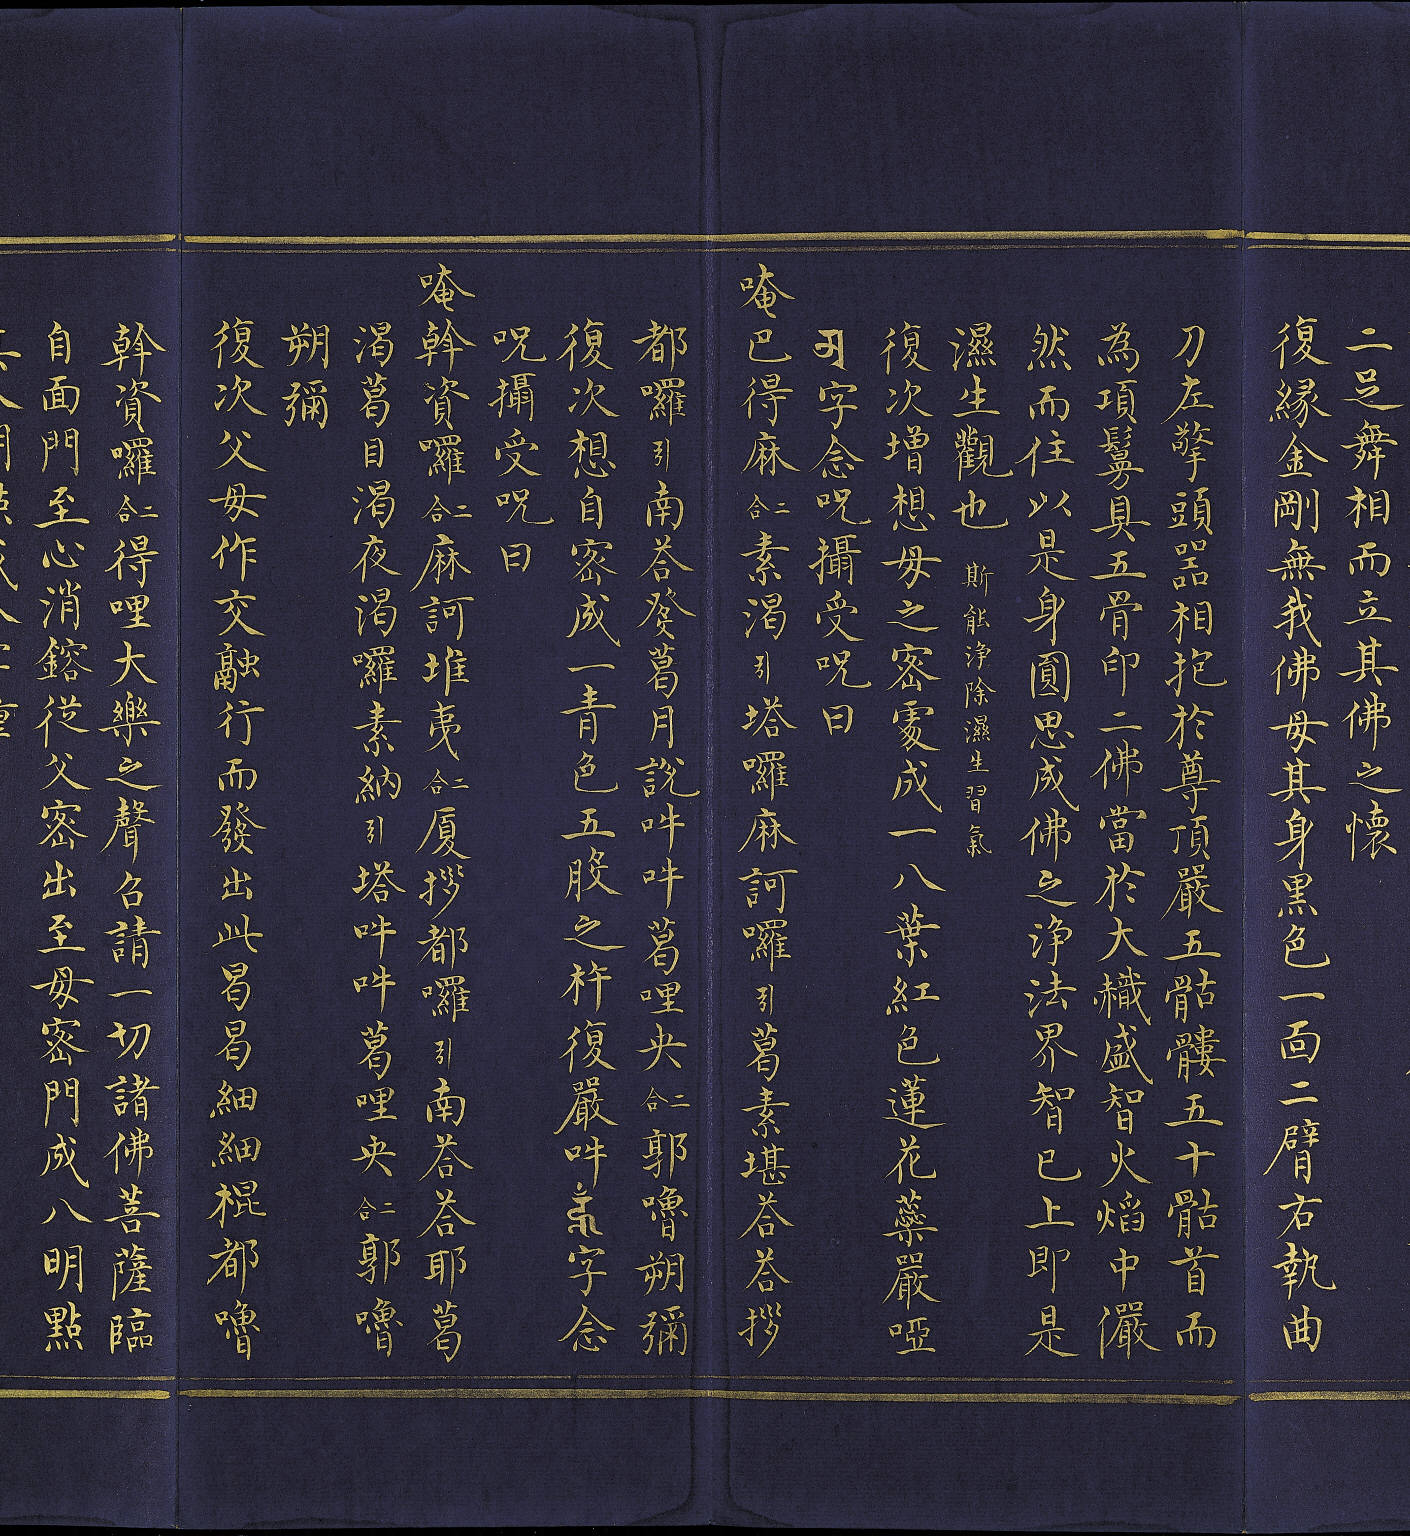 二足舞相而立其佛之懷
復緣金剛無我佛母其身黑色一面二臂右執曲
刀左擎頭器相抱於尊頂嚴五骷髏五十骷首而
為項鬘具五骨印二佛當於大熾盛智火焰中儼
然而住以是身圓思成佛之淨法界智已上即是
濕生觀也 斯能淨除濕生習氣
復次增想母之密處成一八葉紅色蓮花蘂嚴啞
字念呪攝受呪曰
唵巴得麻二合素渴引塔囉麻訶囉引葛素堪荅荅拶
都囉引南荅發葛月說吽吽葛哩央二合郭嚕朔彌
復次想自密成一青色五股之杵復嚴吽字念
呪攝受呪曰
唵斡資囉二合麻訶堆夷二合厦拶都囉引南荅荅耶葛
渴葛目渴夜渴囉素納引塔吽吽葛哩央二合郭嚕
朔彌
復次父母作交融行而發出此曷曷細細棍都嚕
斡資囉二合得哩大樂之聲召請一切諸佛菩薩臨
自面門至心消鎔從父密出至母密門成八明點